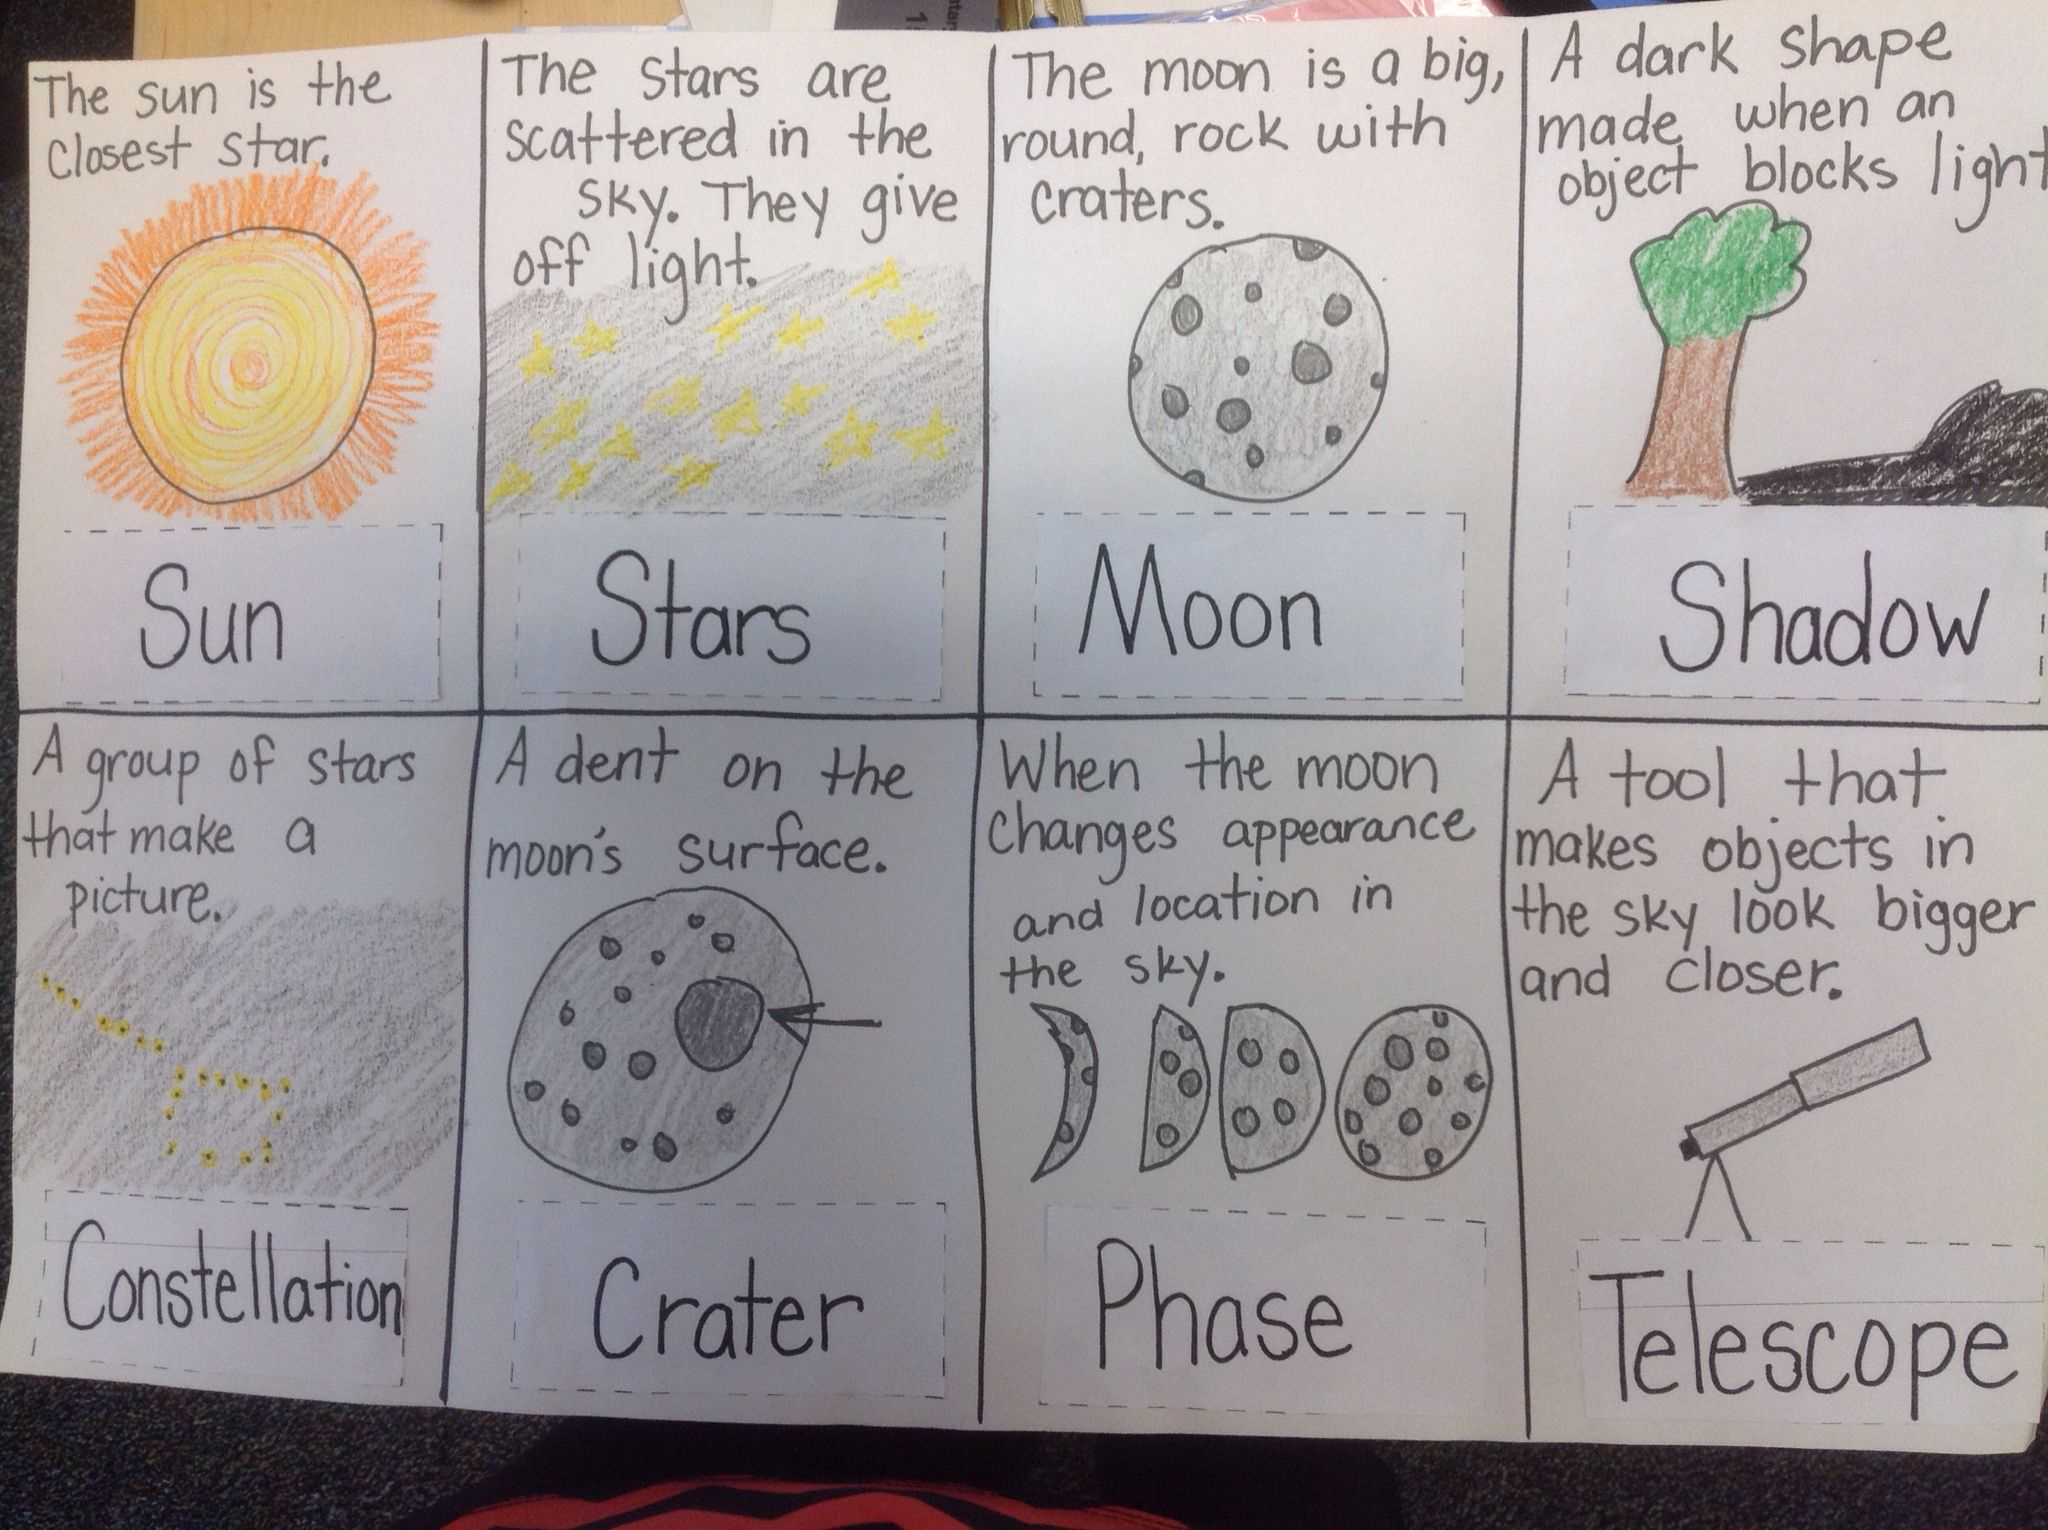 The sun is the
closest star.
Sun
The stars are
scattered in the
sky. They give
off light.
Stars
The moon is a big,
round, rock with
craters.
Moon
A dark shape
made when an
object blocks light
Shadow
A group of stars
that make a
picture.
Constellation
A dent on the
moon's surface.
Crater
When the moon
changes appearance
and location in
the sky.
Phase
A tool that
makes objects in
the sky look bigger
and closer.
Telescope